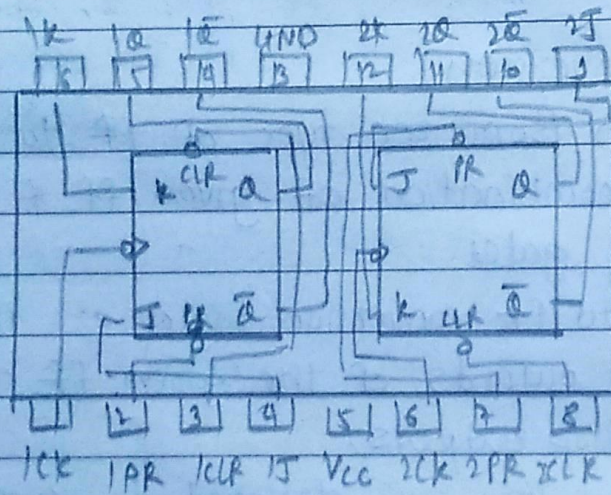 1K 1Q 1Q̅ GND 2K 2Q 2Q̅ 2J̅
16 15 14 13 12 11 10 9
CLR PR
K Q J Q
J PR Q̅ K CLR Q̅
2 3 4 5 6 7 8
1CK 1PR 1CLR 1J VCC 2CK 2PR 2CLR